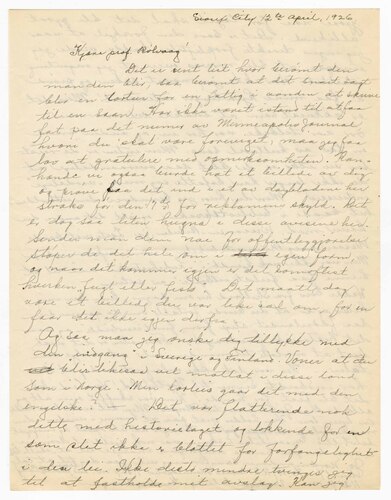 Sioux City 12te April, 1926
Kjære prof. Rölvaag!
Det er sent lit hvor berömt den
manden blir, saa berömt at det snart
blir en tortur for en fattig i aanden at skrive
til en saan. Har ikke været istand til at faa
fat paa det numer av Minneapolis Journal
hvori du skal være foreviget, maa jeg faa
lov at gratulere med opmerksomheten.
hande vi ogsaa burde hat et billede av dig
og prove faa det ind i et av dagbladene her
straks før den 17de for reklamens skyld. Det
er dog saa liten hugna i disse aviserne her.
Sender man dem noe for offentliggjörelse
stöper de det hele om i egen form,
og naar det kommer igjen er det
hverken fugl eller fisk. Det maatte dog
være et billede du var like sæl om, for en
faar det ikke igjen derfra.
Og saa maa jeg önske dig tillykke med
din indgang i Sverige og Finland. Voner at du
blir likesaa vel mottat i disse land
som i Norge. Men hvorleis gaar det med den
engelske? — Det var flatterende nok
dette med historielaget og lokkende for en
som slet ikke er blottet for forfængelighet
i den lee. Ikke desto mindre tvinges jeg
til at fastholde mit avslag. Kan jeg